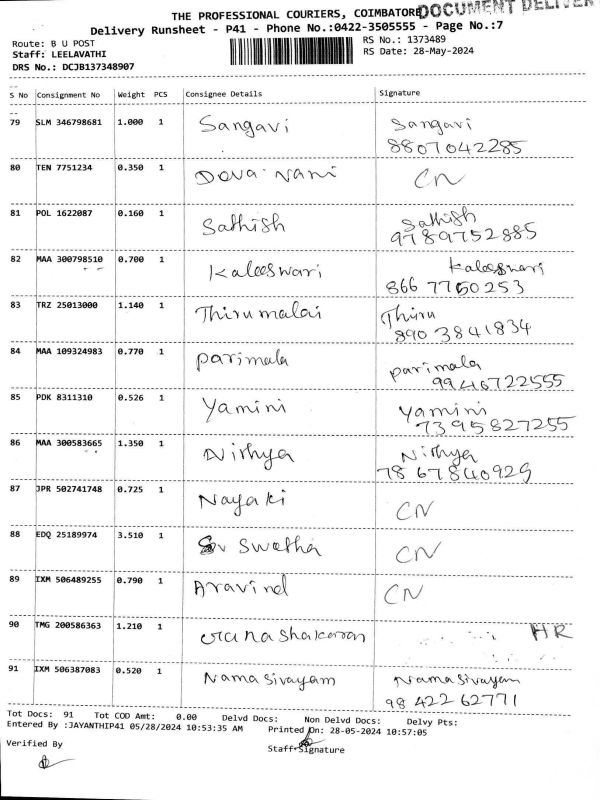 THE PROFESSIONAL COURIERS, COIMBATORE
DOCUMENT DELIVER
Delivery Runsheet - P41 - Phone No.:0422-3505555 - Page No.:7
Route: B U POST
RS No.: 1373489
Staff: LEELAVATHI
RS Date: 28-May-2024
DRS No.: DCJB137348907
S No Consignment No Weight PCS Consignee Details Signature
79 SLM 346798681 1.000 1 Sangavi Sangavi
8807042285
80 TEN 7751234 0.350 1 Deva nani CN
81 POL 1622087 0.160 1 Sathish Sathish
9789752885
82 MAA 300798510 0.700 1 Kaleeswari Kaleeswari
866 7760253
83 TRZ 25013000 1.140 1 Thirumalai Thiru
890 3841834
84 MAA 109324983 0.770 1 parimala parimala
9946722555
85 PDK 8311310 0.526 1 Yamini Yamini
7395827255
86 MAA 300583665 1.350 1 Nithya Nithya
7867840929
87 JPR 502741748 0.725 1 Nayaki CN
88 EDQ 25189974 3.510 1 Swetha CN
89 IXM 506489255 0.790 1 Aravind CN
90 TMG 200586363 1.210 1 HR
91 IXM 506387083 0.520 1 Namasivayam Namasivayam
98 422 62771
Tot Docs: 91 Tot COD Amt: 0.00 Delvd Docs: Non Delvd Docs: Delvy Pts:
Entered By :JAYANTHIP41 05/28/2024 10:53:35 AM Printed On: 28-05-2024 10:57:05
Verified By
Staff Signature